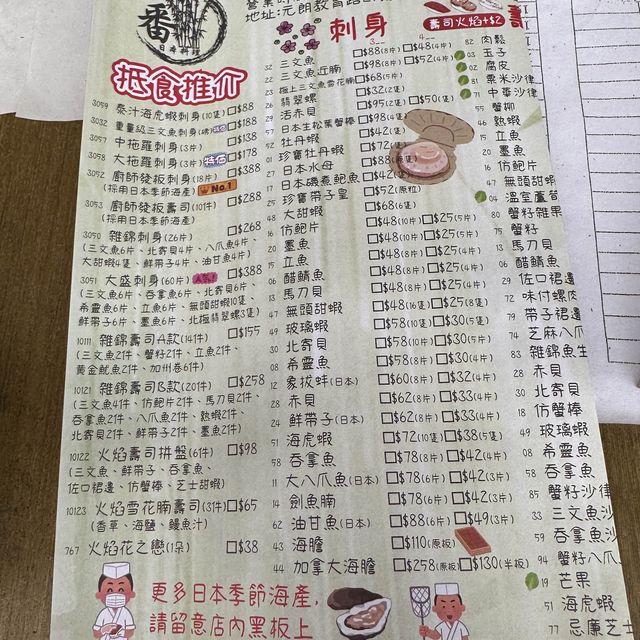 番
日本料理
地址:元朗教育路
抵食推介
3059 泰汁海虎蝦刺身(10隻) □$88
3032 重量級三文魚刺身(磅) □$188
3057 中拖羅刺身(3片) □$138
3058 大拖羅刺身(3片) 特價 □$178
3052 廚師發板刺身(18片) □$388
(採用日本季節海產) No.1
3053 廚師發板壽司(10件) □$288
(採用日本季節海產)
3050 雜錦刺身(26片) □$268
(三文魚6片、北寄貝4片、八爪魚4片、
大甜蝦4隻、鮮帶子4片、油甘魚4片)
3051 大盛刺身(60片) 人氣! □$388
(三文魚6片、吞拿魚6片、北寄貝6片、
希靈魚6片、立魚6片、無頭甜蝦10隻、
鮮帶子6片、墨魚6片、北極翡翠螺3隻)
10111 雜錦壽司A款(14件) □$155
(三文魚2件、蟹籽2件、立魚2件、
黃金魷魚2件、加州卷6件)
10121 雜錦壽司B款(20件) □$258
(三文魚4件、仿鮑片2件、馬刀貝1件、
吞拿魚2件、八爪魚2件、熱蝦2件、
北寄貝2件、鮮帶子2件、墨魚2件)
10122 火焰壽司拼盤(6件) □$98
(三文魚、鮮帶子、吞拿魚、
佐口裙邊、仿蟹棒、芝士甜蝦)
10123 火焰雪花腩壽司(3件) □$65
(香草、海鹽、鰻魚汁)
767 火焰花之戀(1朵) □$38
更多日本季節海產,
請留意店內黑板上
刺身
32 三文魚 □$88(8片) □$48(4片)
三文魚近腩 □$98(8片) □$52(4片)
極上三文魚雪花腩 □$68(5片)
翡翠螺 □$32(2隻)
29 活赤貝 □$95(2隻) □$50(1隻)
57 日本生松葉蟹棒 □$98
52 牡丹蝦 □$42
01 珍寶牡丹蝦 □$72
27 日本水母 □$88
17 日本磯煮鮑魚 □$42
25 珍寶帶子皇 □$52(原粒)
48 大甜蝦 □$68(6隻)
16 仿鮑片 □$48(10片) □$25(5片)
20 墨魚 □$48(8片) □$25(4片)
15 立魚 □$48(8片) □$25(4片)
06 醋鯖魚 □$48(8片) □$25(4片)
13 馬刀貝 □$48(8片) □$25(4片)
47 無頭甜蝦 □$48(16隻) □$25(8隻)
49 玻璃蝦 □$58(10隻) □$30(5隻)
30 北寄貝 □$58(10片) □$30(5片)
08 希靈魚 □$58(8片) □$30(4片)
12 象拔蚌(日本) □$60(8片) □$32(4片)
28 赤貝 □$62(8片) □$33(4片)
24 鮮帶子(日本) □$62(8片) □$33(4片)
51 海虎蝦 □$72(10隻) □$38(5隻)
58 吞拿魚 □$72(8片) □$38(4片)
11 大八爪魚(日本) □$78(6片) □$42(3片)
14 劍魚腩 □$78(6片) □$42(3片)
62 油甘魚(日本) □$88(6片) □$49(3片)
43 海膽 □$110(原板)
44 加拿大海膽 □$258(原板) □$130(半板)
壽司火焰+$2
壽
82 肉鬆
03 玉子
02 腐皮
81 粟米沙律
71 中華沙律
55 蟹柳
46 熱蝦
15 立魚
20 墨魚
16 仿鮑片
47 無頭甜蝦
04 溫室蘆筍
80 蟹籽雜果
75 蟹籽
13 馬刀貝
06 醋鯖魚
29 佐口裙邊
72 味付螺肉
79 帶子裙邊
74 芝麻八爪
83 雜錦魚生
28 赤貝
30 北寄貝
18 仿蟹棒
49 玻璃蝦
08 希靈魚
58 吞拿魚
85 蟹籽沙律
33 三文魚沙
59 吞拿魚沙
94 蟹籽八爪
19 芒果
51 海虎蝦
77 忌廉芝士